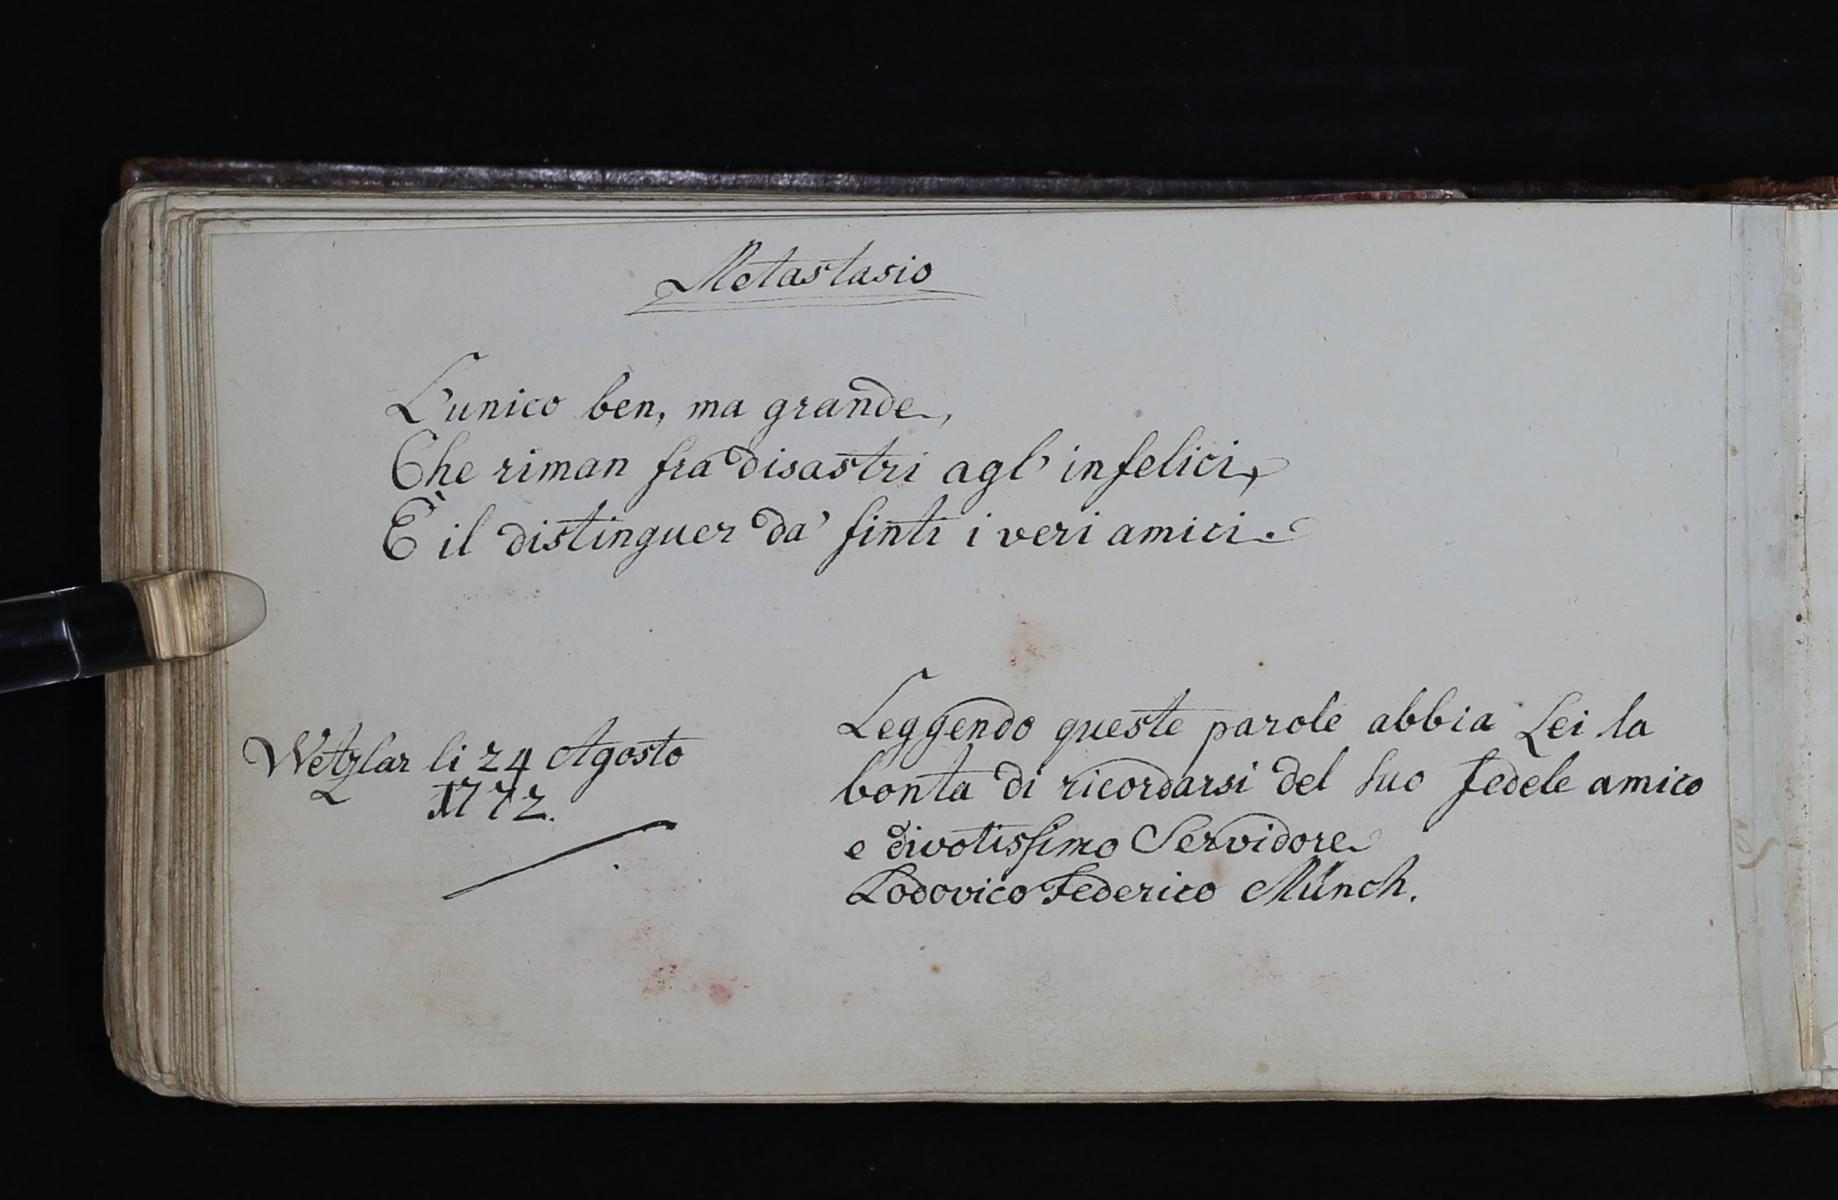 Metastasio
L'unico ben, ma grande,
Che riman fra disastri agl' infelici,
È il distinguer da' finti i veri amici.
Wetzlar li 24 Agosto
1772.
Leggendo queste parole abbia Lei la
bonta di ricordarsi del suo fedele amico
e divotissimo Servidore
Lodovico Federico Münch.